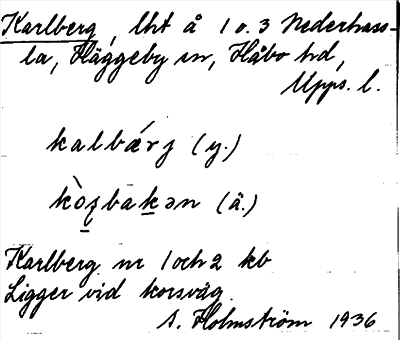 Karlberg, lht å 1 o. 3 Nederhass-
la, Häggeby sn, Håbo hd,
Upps. l.
kalbǽrj (y.)
(ä.)
Karlberg nr 1 och 2 kb
Ligger vid korsväg.
A. Holmström 1936